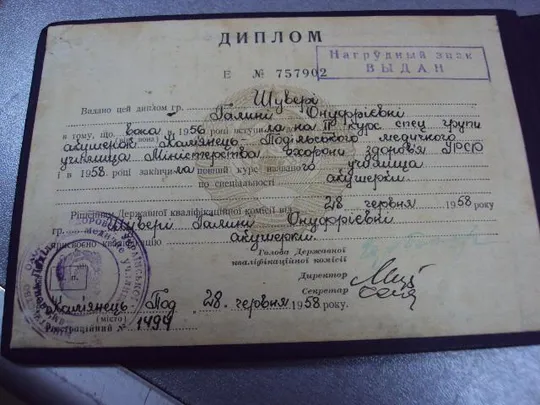 ДИПЛОМ
Нагрудный знак
ВЫДАН
Е № 757902
Видано цей диплом гр. Шувері
Галині Онуфріївні
в тому, що вона в 1956 році вступила на ІІ курс спец групи
акушерок Кам'янець-Подільського медичного
училища Міністерства охорони здоров'я УРСР
і в 1958 році закінчила повний курс названого училища
по спеціальності акушерки
Рішенням Державної кваліфікаційної комісії від 28 червня 1958 року
гр. Шувері Галині Онуфріївні
присвоєно кваліфікацію акушерки.
Голова Державної
кваліфікаційної комісії
Директор
Секретар
Кам'янець-Под 28 червня 1958 року.
(місто)
Реєстраційний № 1494